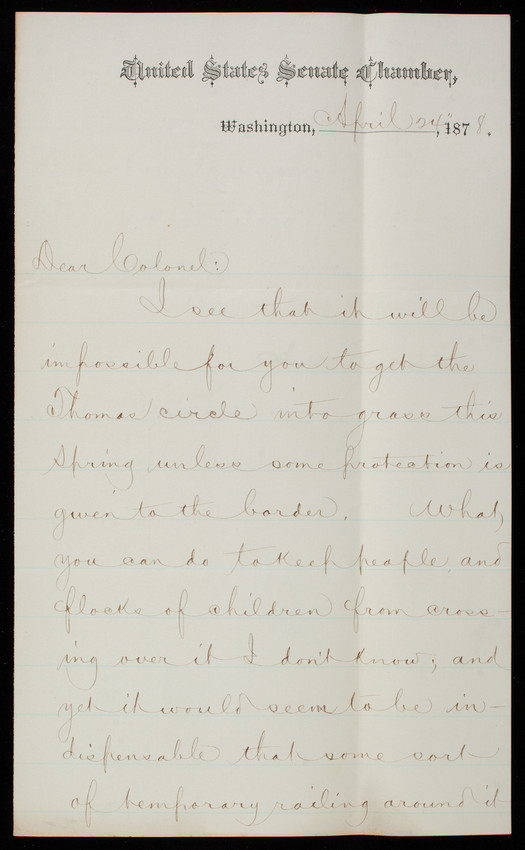 United States Senate Chamber,
Washington, April 24th, 1878.
Dear Colonel:
I see that it will be
impossible for you to get the
Thomas circle into grass this
Spring unless some protection is
given to the border. What
you can do to keep people and
flocks of children from cross-
ing over it I don't know; and
yet it would seem to be in-
dispensable that some sort
of temporary railing around it